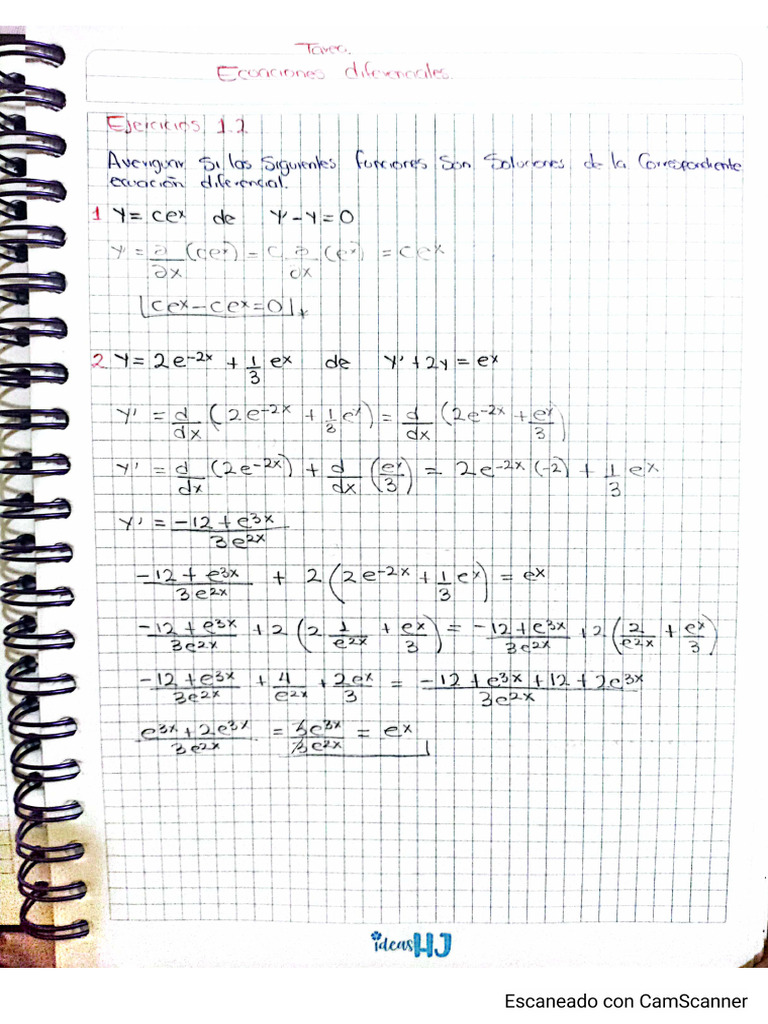 Tarea.
Ecuaciones diferenciales.
Ejercicios 1.2
Averiguar Si las Siguientes funciones Son Soluciones de la Correspondiente
ecuación diferencial.
1 Y = ceˣ de Y' - Y = 0
Y' = ∂/∂x (ceˣ) = C ∂/∂x (eˣ) = ceˣ
ceˣ - ceˣ = 0
2 Y = 2e⁻²ˣ + 1/3 eˣ de Y' + 2y = eˣ
Y' = d/dx (2e⁻²ˣ + 1/3 eˣ) = d/dx (2e⁻²ˣ + eˣ/3)
Y' = d/dx (2e⁻²ˣ) + d/dx (eˣ/3) = 2e⁻²ˣ (-2) + 1/3 eˣ
Y' = (-12 + e³ˣ)/(3e²ˣ)
(-12 + e³ˣ)/(3e²ˣ) + 2 (2e⁻²ˣ + 1/3 eˣ) = eˣ
(-12 + e³ˣ)/(3e²ˣ) + 2 (2 1/e²ˣ + eˣ/3) = (-12 + e³ˣ)/(3e²ˣ) + 2 (2/e²ˣ + eˣ/3)
(-12 + e³ˣ)/(3e²ˣ) + 4/e²ˣ + 2eˣ/3 = (-12 + e³ˣ + 12 + 2e³ˣ)/(3e²ˣ)
(e³ˣ + 2e³ˣ)/(3e²ˣ) = 3e³ˣ/3e²ˣ = eˣ
ideas HJ
Escaneado con CamScanner